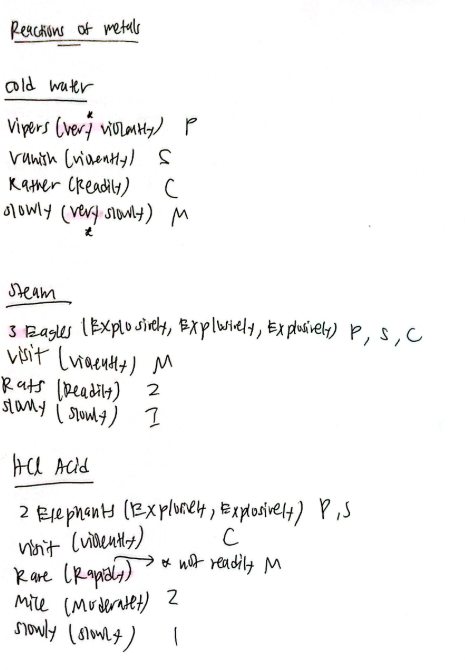 Reactions of metals
cold water
Vipers (very* violently) P
vanish (violently) S
Rather (Readily) C
slowly (very* slowly) M
Steam
3 Eagles (Explosively, Explosively, Explosively) P, S, C
visit (violently) M
Rats (Readily) Z
slowly (slowly) I
HCl Acid
2 Elephants (Explosively, Explosively) P, S
visit (violently) C
Rare (Rapidly) → * not readily M
Mice (Moderately) Z
slowly (slowly) I